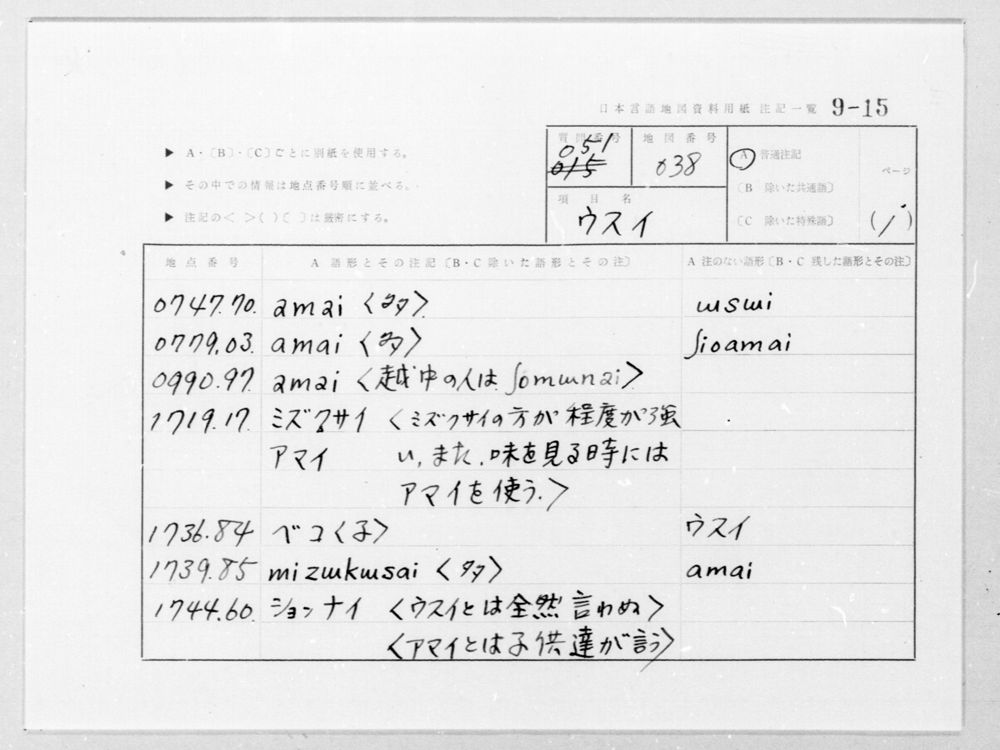 日本言語地図資料用紙 注記一覧 9-15
▶ A・〔B〕・〔C〕ごとに別紙を使用する。
▶ その中での情報は地点番号順に並べる。
▶ 注記の< >( )〔 〕は厳密にする。
質問番号 051 015
地図番号 038
項目名 ウスイ
A 普通注記
〔B 除いた共通語〕
〔C 除いた特殊語〕
ページ (1)
地点番号 A 語形とその注記〔B・C 除いた語形とその注〕 A 注のない語形〔B・C 残した語形とその注〕
0747.70. amai 〈多〉 ɯsɯi
0779.03. amai 〈多〉 ʃioamai
0990.97. amai 〈越中の人は ʃomɯnai〉
1719.17. ミズクサイ 〈ミズクサイの方が程度が強
アマイ い,また,味を見る時には
アマイを使う.〉
1736.84 ベコ〈子〉 ウスイ
1739.85 mizɯkɯsai 〈多〉 amai
1744.60. ションナイ 〈ウスイとは全然言わぬ〉
〈アマイとは子供達が言う〉